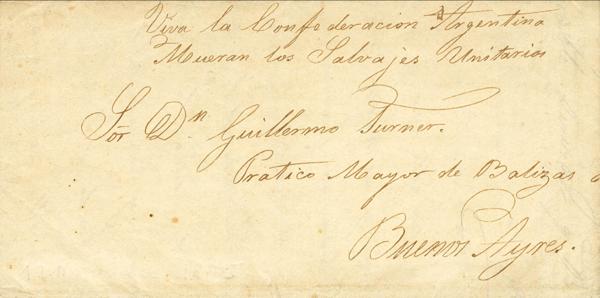 Viva la Confederacion Argentina
Mueran los Salvajes Unitarios
Sor Dn Guillermo Turner.
Pratico Mayor de Balizas
Buenos Ayres.